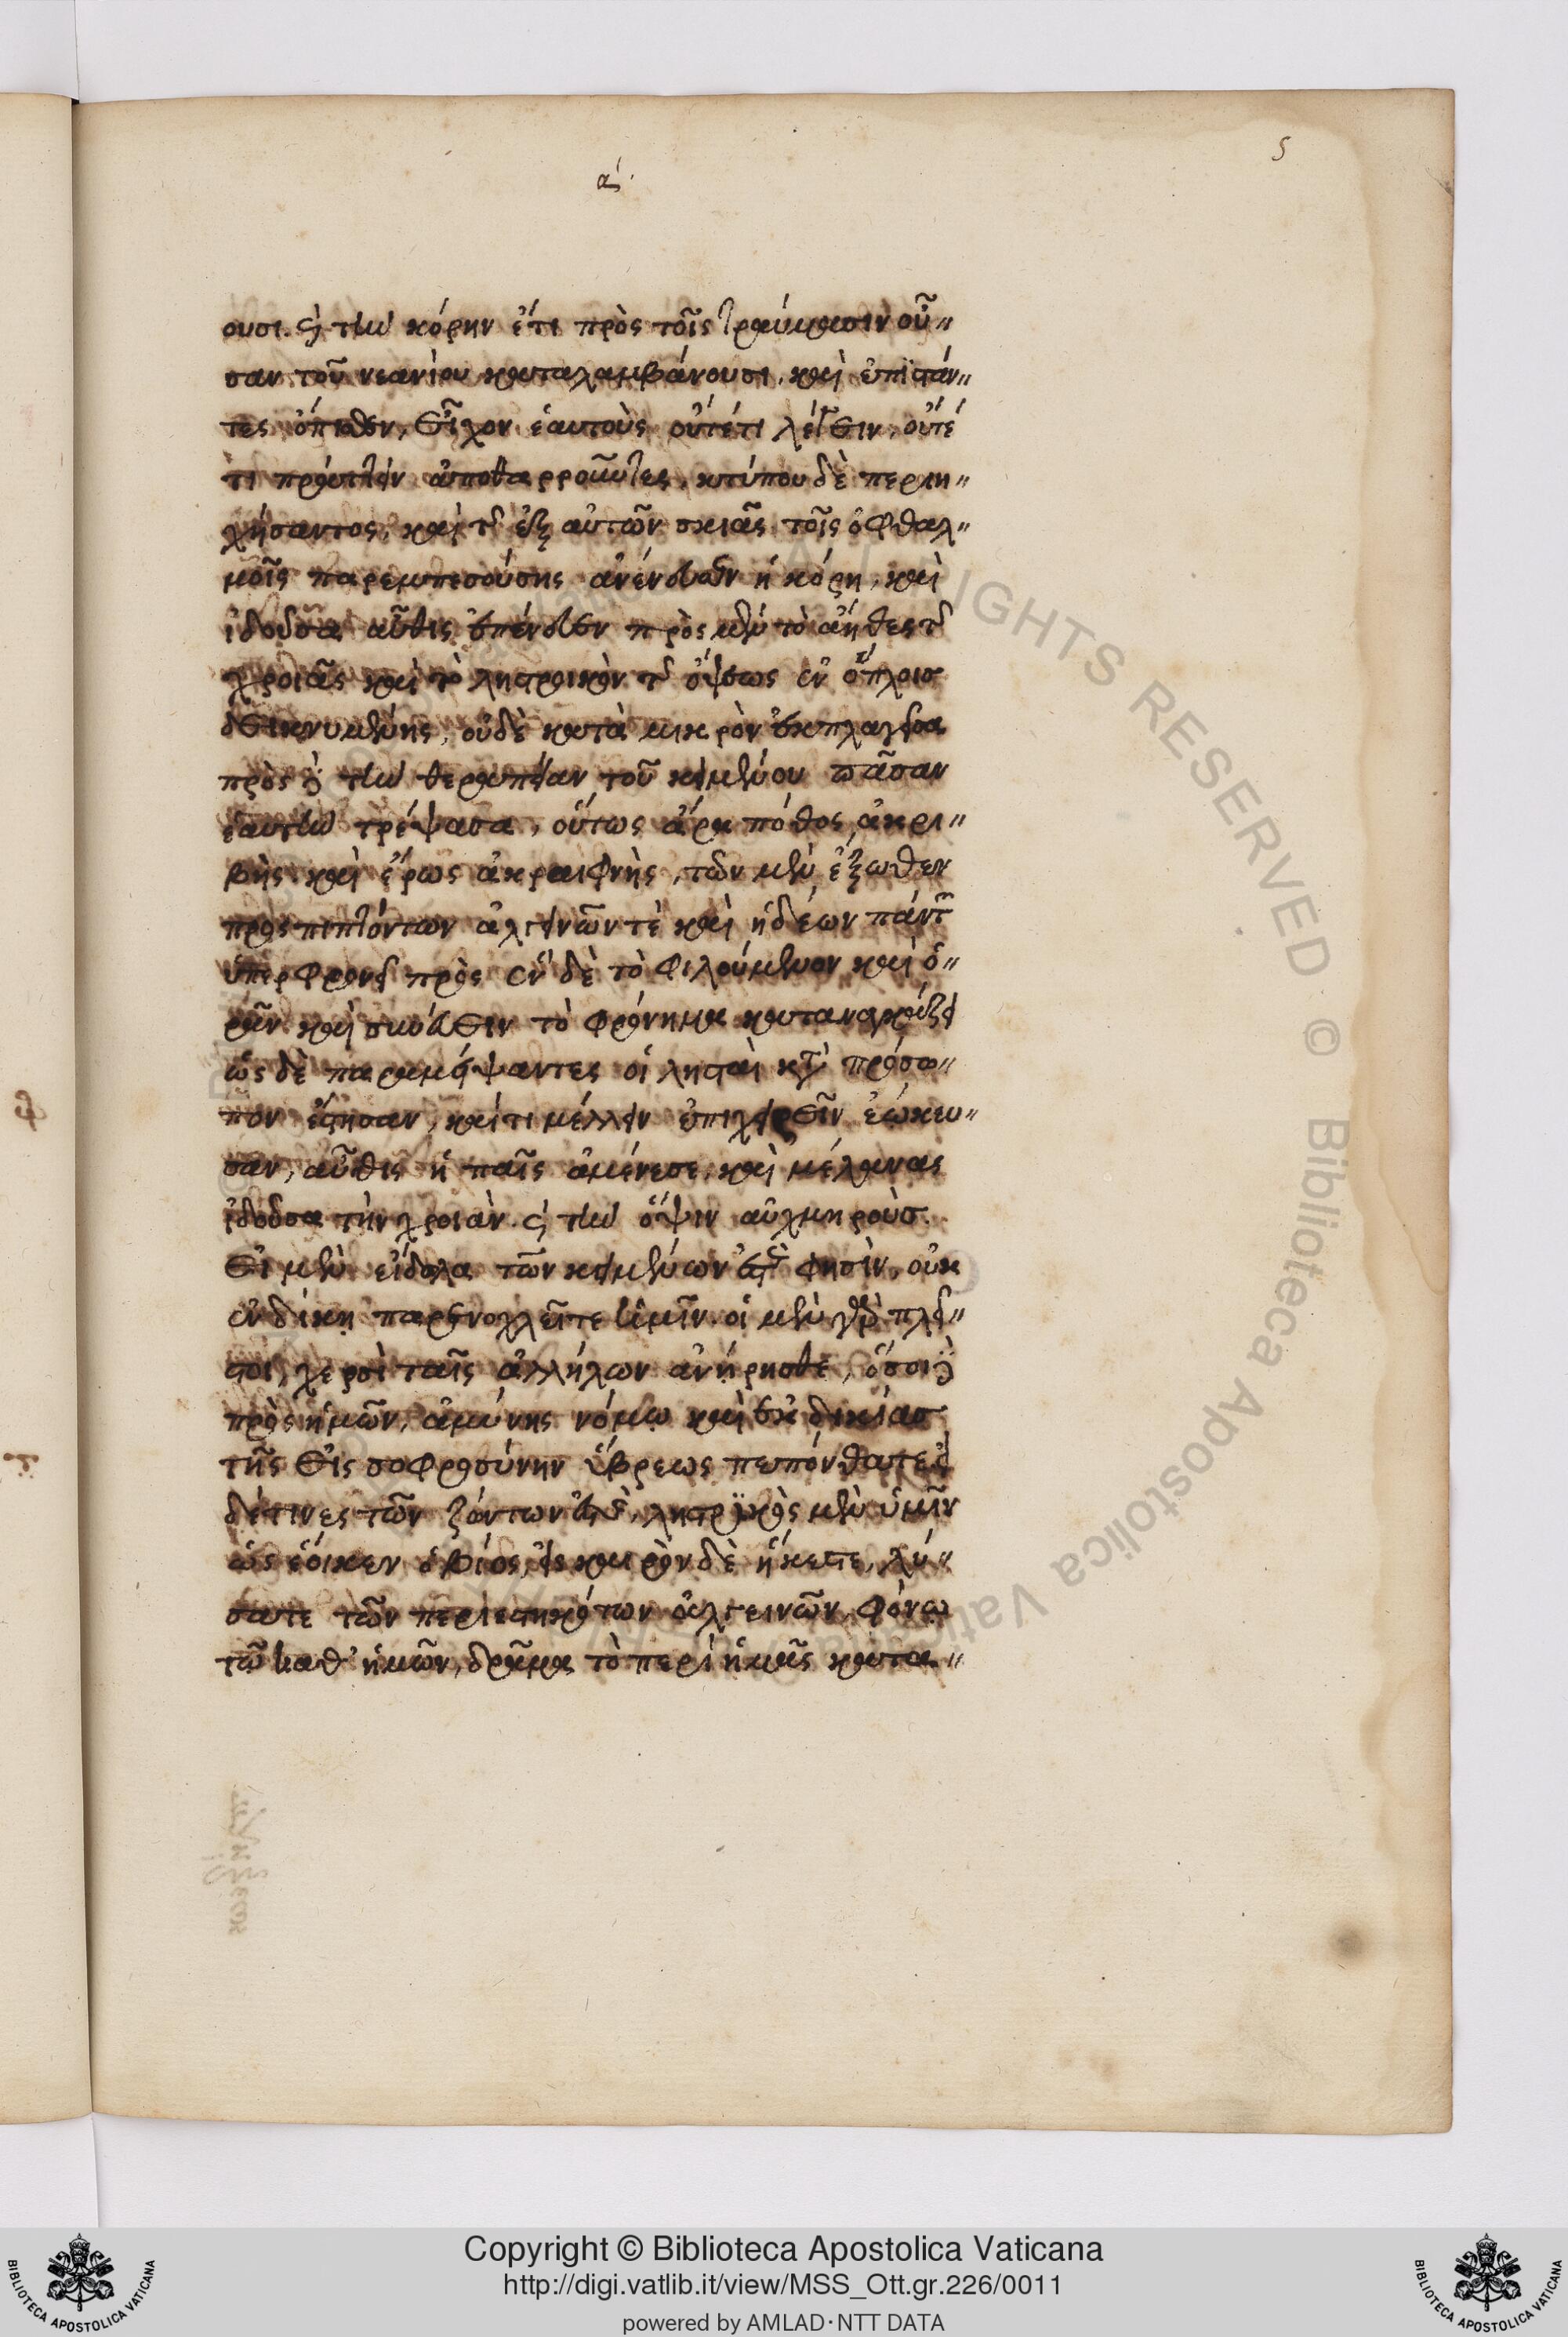 5
α´
ουσι. καὶ τὴν κόρην ἔτι πρὸς τοῖς τραύμασιν οὖ〃
σαν τοῦ νεανίου καταλαμβάνουσι, καὶ ἐπιστάν〃
τες ὄπισθεν, εἶχον ἑαυτοὺς οὔτέ τι λέγειν, οὔτέ
τι πράττειν ἀποθαρροῦντες, κτύπου δὲ περιη〃
χήσαντος, καὶ τῆς ἐξ αὐτῶν σκιᾶς τοῖς ὀφθαλ〃
μοῖς παρεμπεσούσης ἀνένευσεν ἡ κόρη, καὶ
ἰδοῦσα αὖθις ἐπένευσεν πρὸς μὲν τὸ ἄηθες τῆς
χροιᾶς καὶ τὸ λῃστρικὸν τῆς ὄψεως ἐν ὅπλοις
δεικνυμένης, οὐδὲ κατὰ μικρὸν ἐκπλαγεῖσα
πρὸς δὲ τὴν θεραπείαν τοῦ κειμένου πᾶσαν
ἑαυτὴν τρέψασα, οὕτως ἄρα πόθος ἀκρι〃
βὴς καὶ ἔρως ἀκραιφνὴς, τῶν μὲν ἔξωθεν
προσπιπτόντων ἀλγεινῶν τὲ καὶ ἡδέων πάντων
ὑπερφρονεῖ πρὸς ἓν δὲ τὸ φιλούμενον καὶ ὁ〃
ρᾶν καὶ σπεύδειν τὸ φρόνημα καταναγκάζει
ὡς δὲ παραμείψαντες οἱ λῃσταὶ κατὰ πρόσω〃
πον ἔστησαν, καί τι μέλλειν ἐπιχειρεῖν ἐῴκει〃
σαν, αὖθις ἡ παῖς ἀνένευσε, καὶ μέλανας
ἰδοῦσα τὴν χροιὰν. καὶ τὴν ὄψιν αὐχμηροὺς.
εἰ μὲν εἴδωλα τῶν κειμένων ἐστὲ φησὶν, οὐκ
ἐν δίκῃ παρενοχλεῖτε ἡμῖν. οἱ μὲν γὰρ πλεῖ〃
στοι, χερσὶ ταῖς ἀλλήλων ἀνῄρησθε, ὅσοι δὲ
πρὸς ἡμῶν, ἀμύνης νόμω καὶ ἐκδικίας
τῆς εἰς σοφροσύνην ὕβρεως πεπόνθατε εἰ
δέ τινες τῶν ζώντων ἐστὲ, λῃστρικὸς μὲν ὑμῖν
ὡς ἔοικεν ὁ βίος, εἰς καιρὸν δὲ ἥκετε, λύ〃
σατε τῶν περιεστηκότων ἀλγεινῶν, φόνω
τῶ καθ' ἡμῶν, δρᾶμα τὸ περὶ ἡμᾶς κατα〃
Copyright © Biblioteca Apostolica Vaticana
http://digi.vatlib.it/view/MSS_Ott.gr.226/0011
powered by AMLAD·NTT DATA